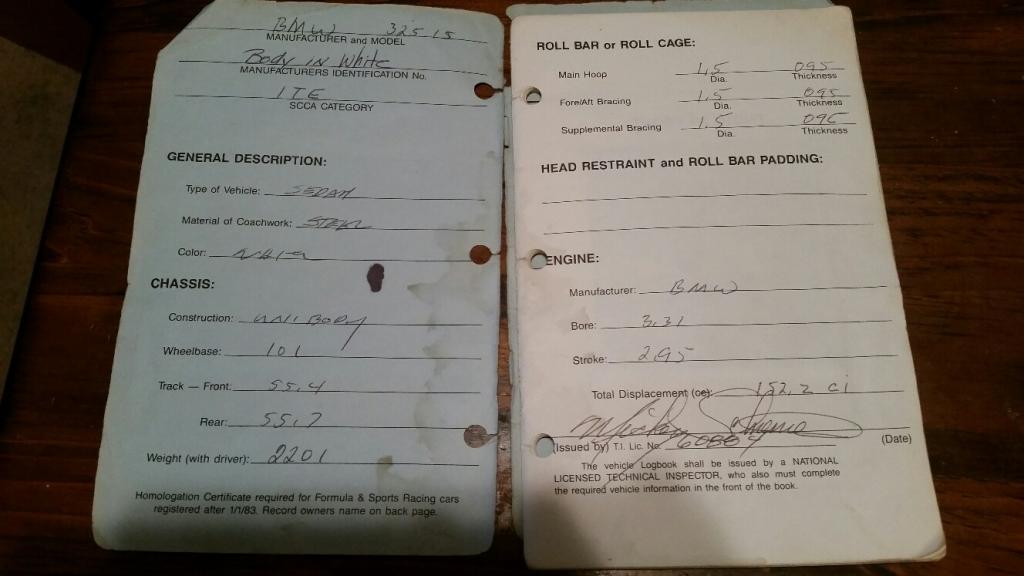 BMW 325 is
MANUFACTURER and MODEL
Body in White
MANUFACTURERS IDENTIFICATION No.
ITE
SCCA CATEGORY
GENERAL DESCRIPTION:
Type of Vehicle: SEDAN
Material of Coachwork: STEEL
Color: WHITE
CHASSIS:
Construction: UNI BODY
Wheelbase: 101
Track — Front: 55.4
Rear: 55.7
Weight (with driver): 2201
Homologation Certificate required for Formula & Sports Racing cars
registered after 1/1/83. Record owners name on back page.
ROLL BAR or ROLL CAGE:
Main Hoop 1.5 095
Dia. Thickness
Fore/Aft Bracing 1.5 095
Dia. Thickness
Supplemental Bracing 1.5 095
Dia. Thickness
HEAD RESTRAINT and ROLL BAR PADDING:
ENGINE:
Manufacturer: BMW
Bore: 3.31
Stroke: 2.95
Total Displacement (cc): 152.2 ci
(Issued by) T.I. Lic. No. (Date)
The vehicle Logbook shall be issued by a NATIONAL
LICENSED TECHNICAL INSPECTOR, who also must complete
the required vehicle information in the front of the book.